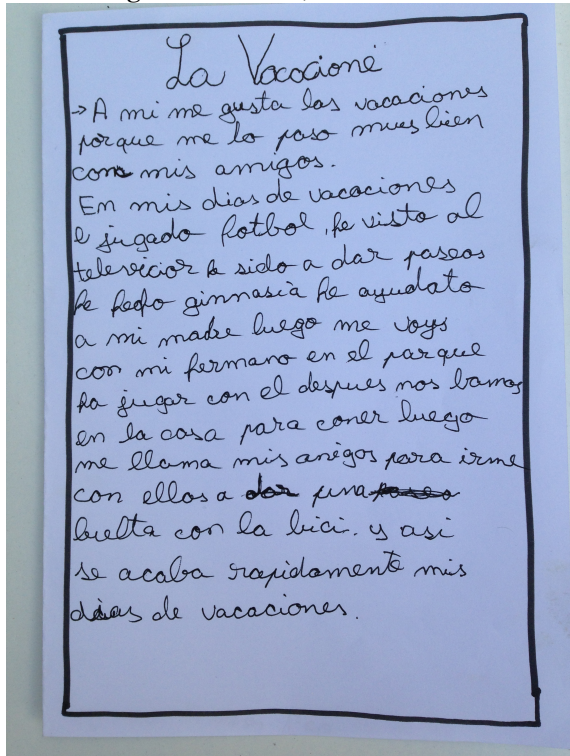 La Vacacione
→ A mi me gusta las vacaciones
porque me lo paso mues bien
con mis amigos.
En mis dias de vacaciones
e jugado fotbol, he visto al
televicior he sido a dar paseos
he hecho ginmasia he ayudato
a mi madre luego me voys
con mi hermano en el parque
ha jugar con el despues nos bamos
en la casa para coner luego
me llama mis amigos para irme
con ellos a una
buelta con la bici. y asi
se acaba rapidamente mis
dias de vacaciones.